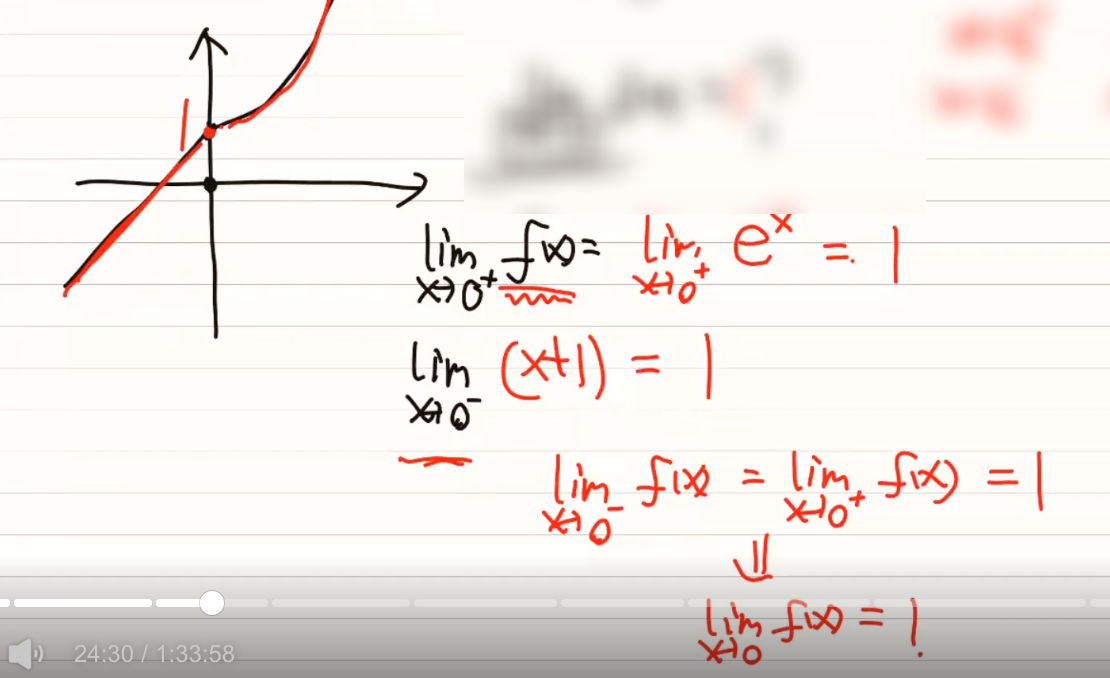 1
lim x→0⁺ f(x) = lim x→0⁺ eˣ = 1
lim x→0⁻ (x+1) = 1
lim x→0⁻ f(x) = lim x→0⁺ f(x) = 1
⇓
lim x→0 f(x) = 1.
24:30 / 1:33:58